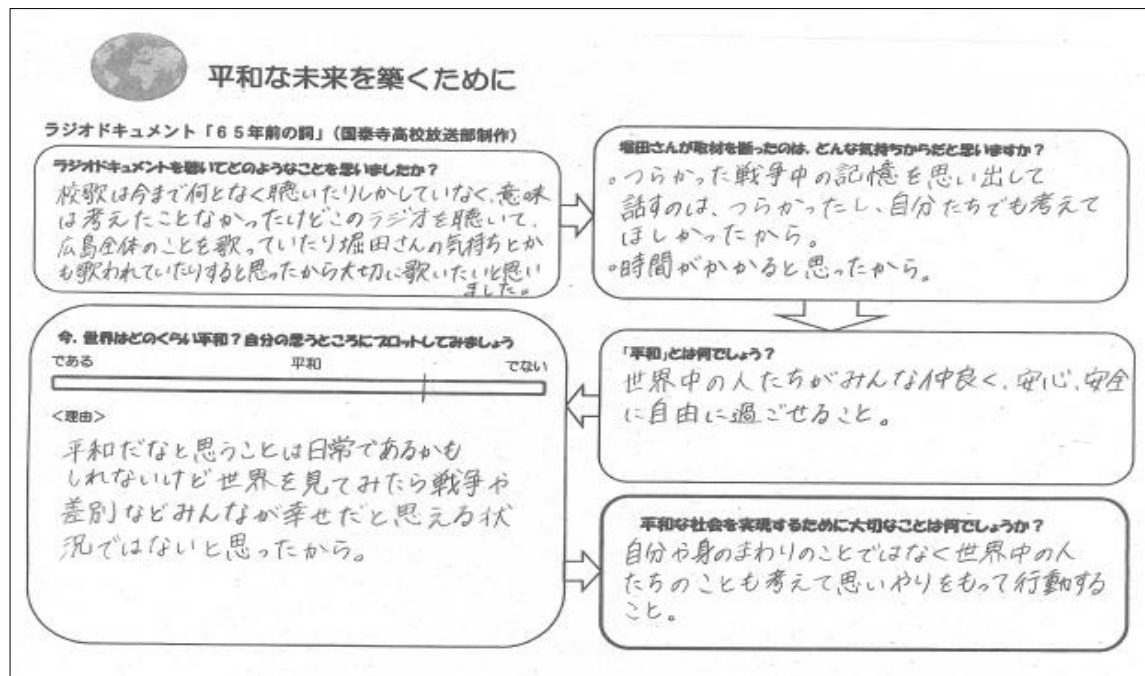 平和な未来を築くために
ラジオドキュメント「65年前の詞」(国泰寺高校放送部制作)
ラジオドキュメントを聴いてどのようなことを思いましたか?
校歌は今まで何となく聴いたりしかしていなく、意味
は考えたことなかったけどこのラジオを聴いて、
広島全体のことを歌っていたり堀田さんの気持ちとか
も歌われていたりすると思ったから大切に歌いたいと思い
ました。
堀田さんが取材を断ったのは、どんな気持ちからだと思いますか?
。つらかった戦争中の記憶を思い出して
話すのは、つらかったし、自分たちでも考えて
ほしかったから。
。時間がかかると思ったから。
「平和」とは何でしょう?
世界中の人たちがみんな仲良く、安心、安全
に自由に過ごせること。
今、世界はどのくらい平和?自分の思うところにプロットしてみましょう
である 平和 でない
<理由>
平和だなと思うことは日常であるかも
しれないけど世界を見てみたら戦争や
差別などみんなが幸せだと思える状
況ではないと思ったから。
平和な社会を実現するために大切なことは何でしょうか?
自分や身のまわりのことではなく世界中の人
たちのことも考えて思いやりをもって行動する
こと。